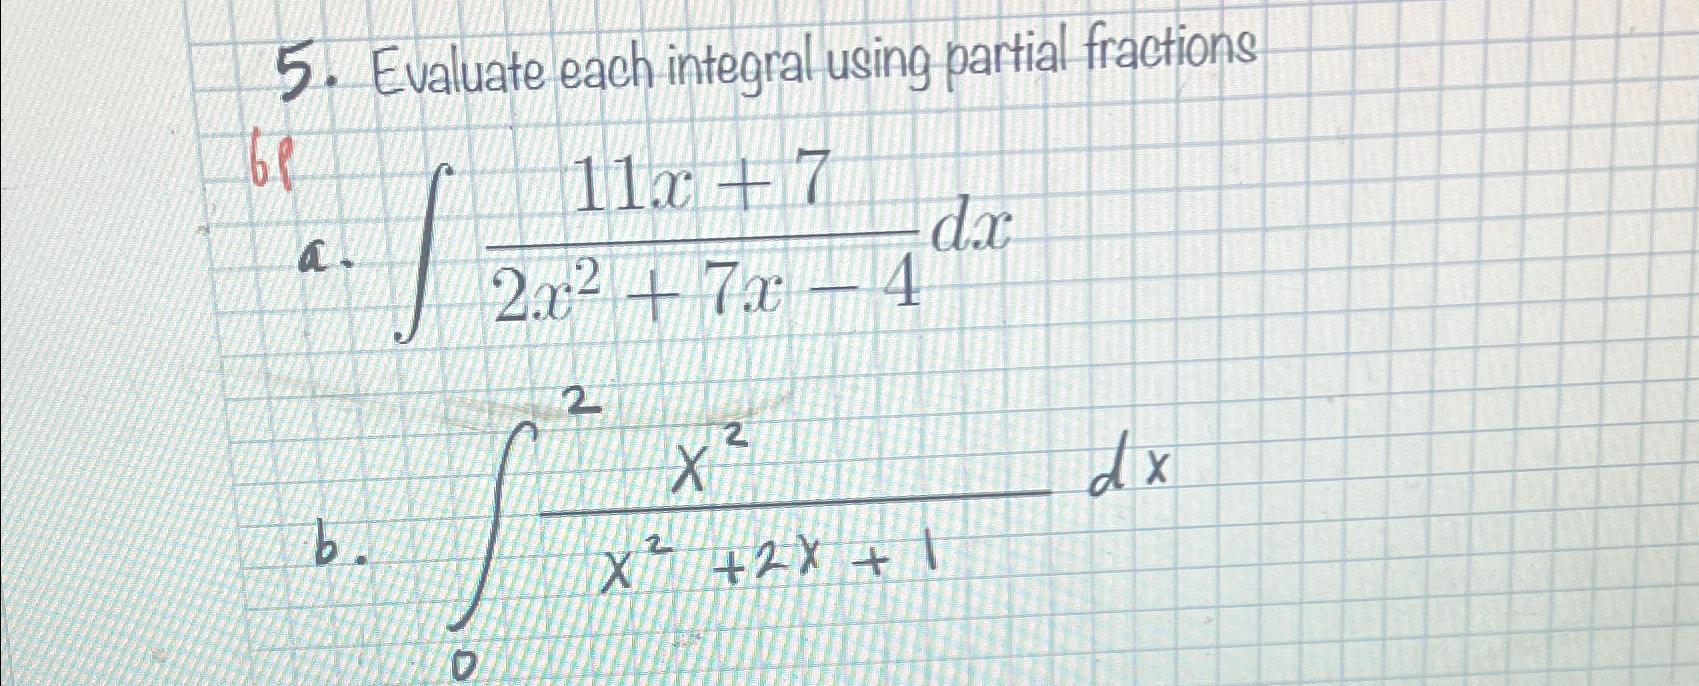 5. Evaluate each integral using partial fractions
6p
a. ∫ (11x + 7)/(2x² + 7x − 4) dx
b. ∫₀² x²/(x² + 2x + 1) dx